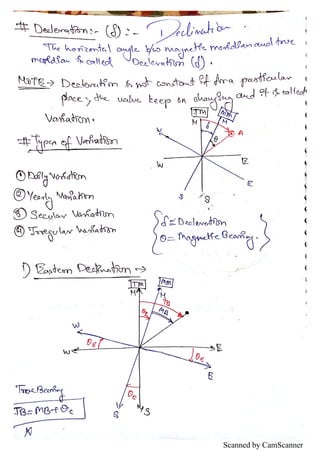 # Decleration:- (δ) :- Declination.
The horizental angle b/w magnetic meridian and true
meridian is called Decleration (δ).
NOTE → Decleration is not constant if for a particular
place, the value keep on changing and it is called
Variation.
TM MM
N N
δ
A
θ
W
W E
E
S S
# Types of Variation
① Daily Variation
② Yearly Variation
③ Secular Variation
④ Irregular Variation
δ = Decleration
θ = Magnetic Bearing.
1) Eastern Declination →
TM MM
N N
TB
θe MB
W
θe
W E
θe
E
θe
S S
True Bearing
TB = MB + θe
Scanned by CamScanner